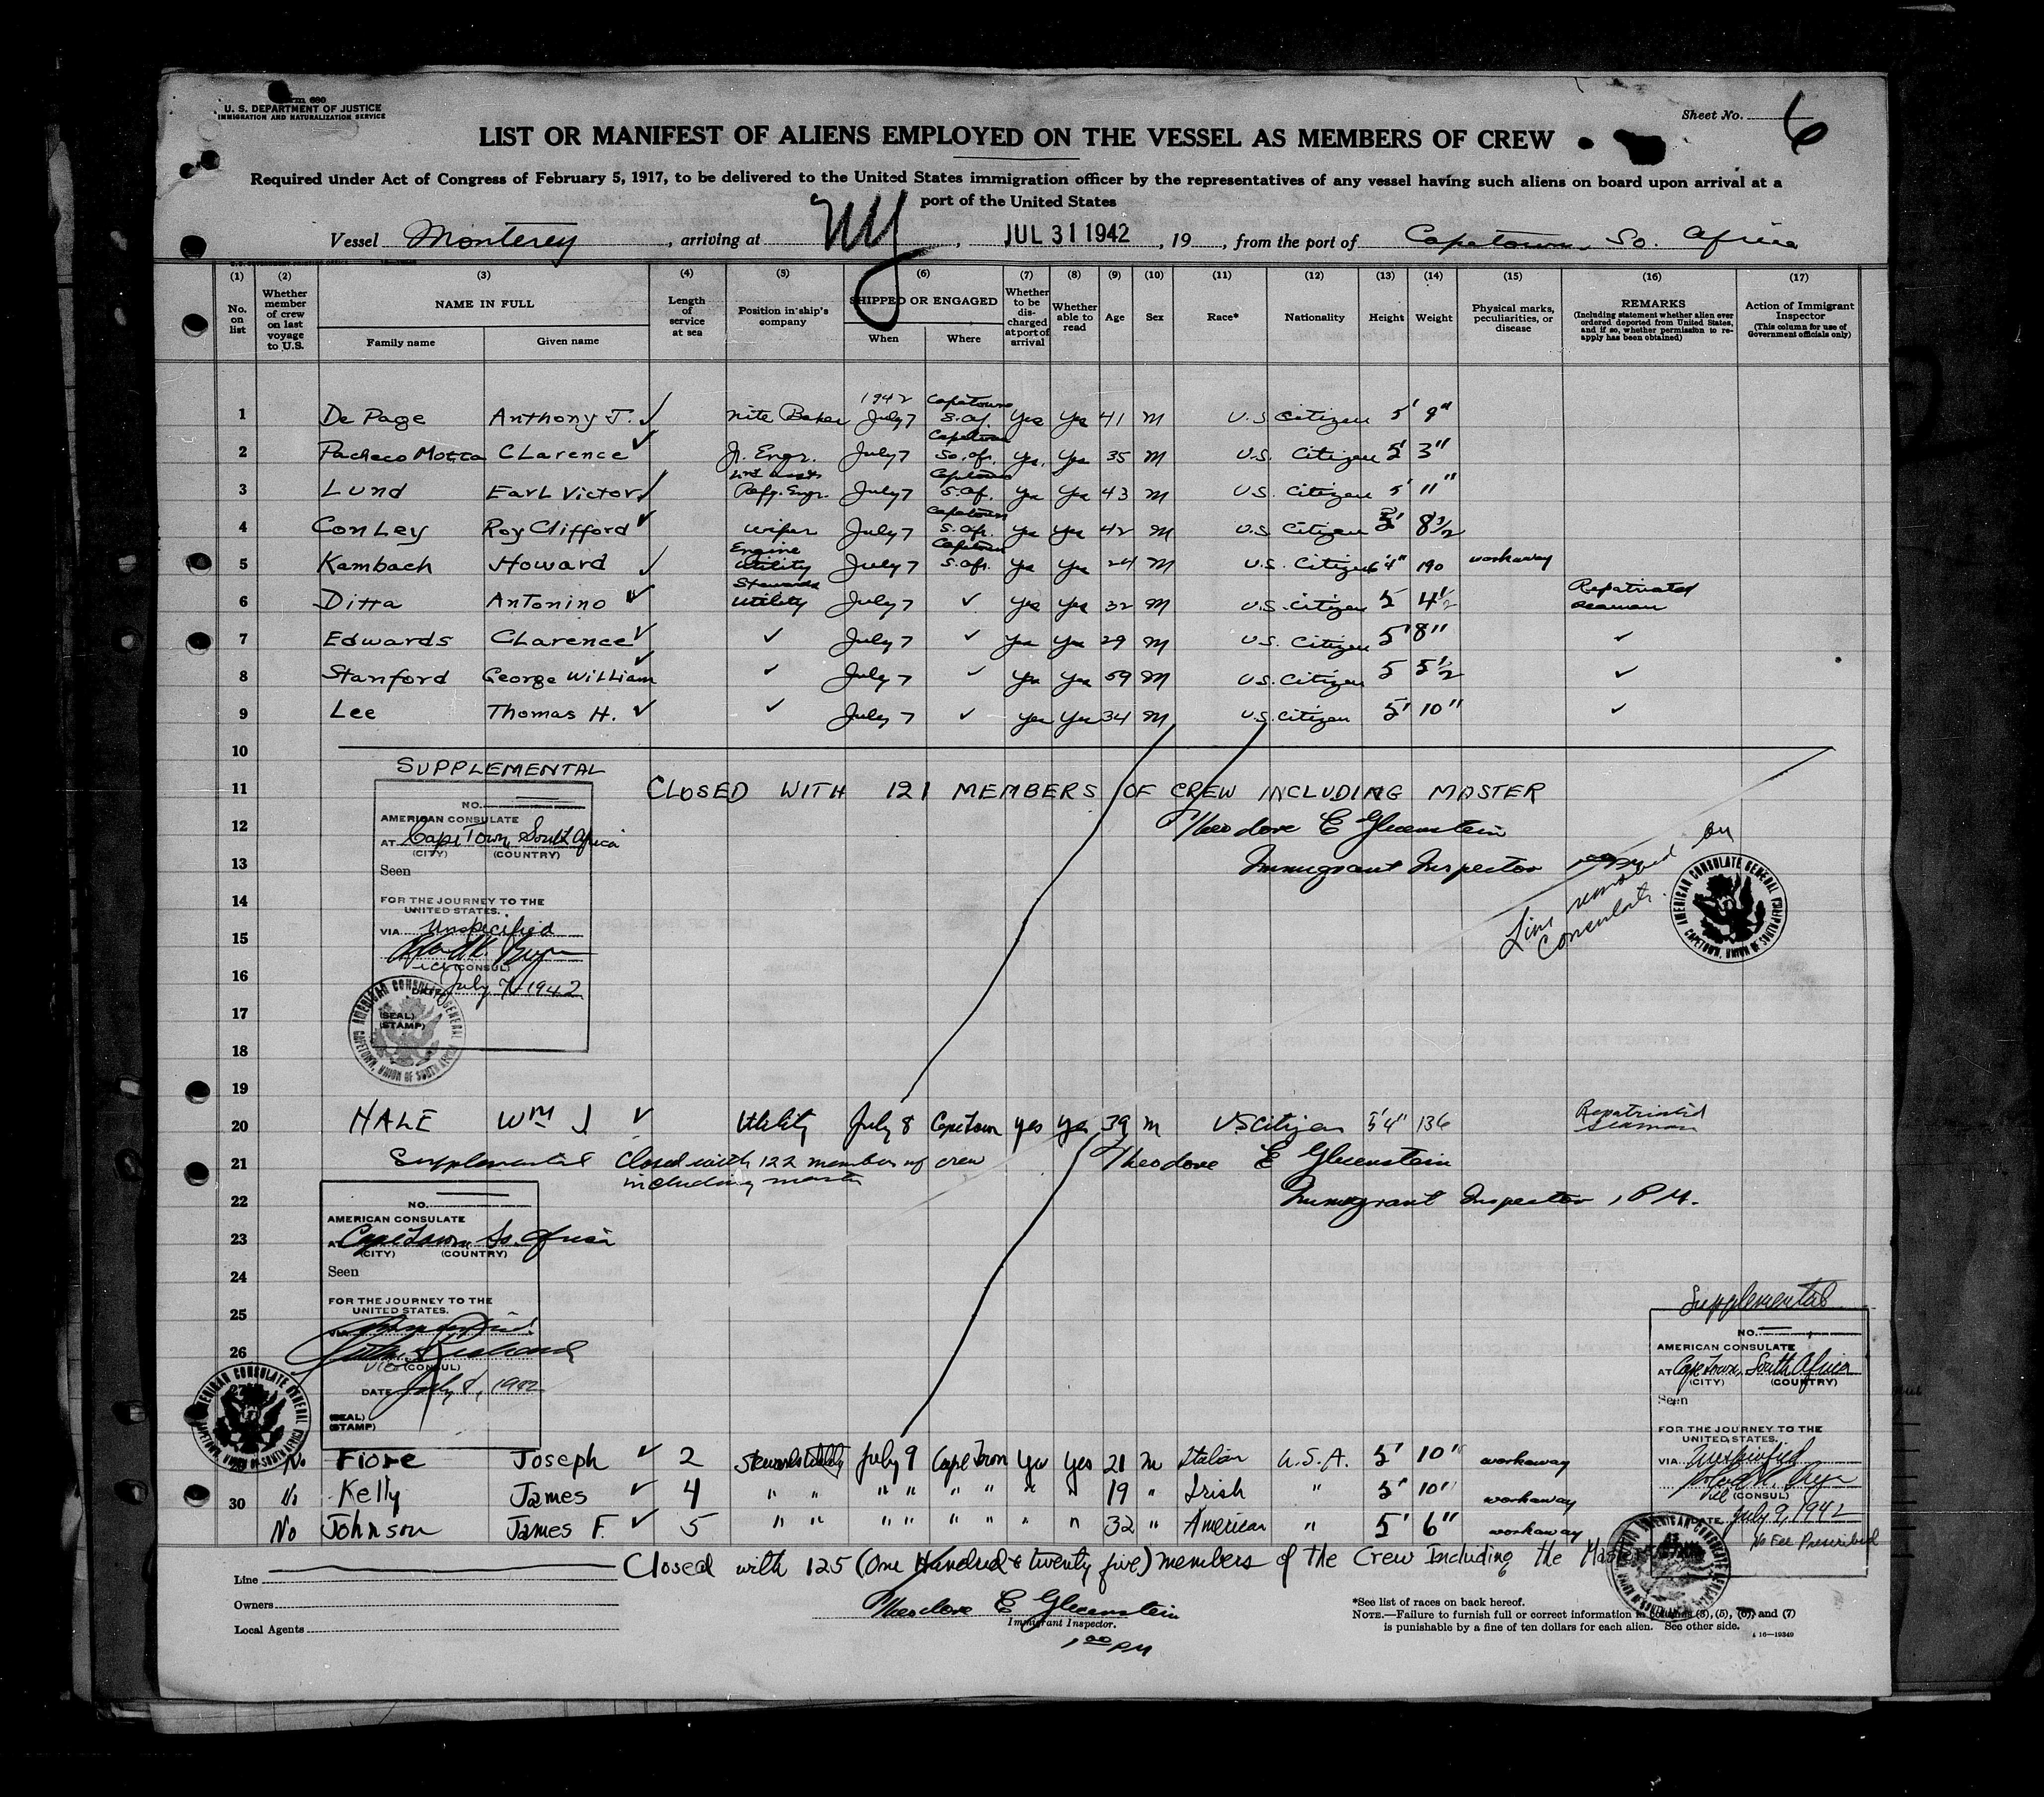 Form 680
U. S. DEPARTMENT OF JUSTICE
IMMIGRATION AND NATURALIZATION SERVICE
Sheet No. 6
LIST OR MANIFEST OF ALIENS EMPLOYED ON THE VESSEL AS MEMBERS OF CREW
Required under Act of Congress of February 5, 1917, to be delivered to the United States immigration officer by the representatives of any vessel having such aliens on board upon arrival at a
port of the United States
Vessel Monterey, arriving at NY, JUL 31 1942, 19, from the port of Capetown, So. Africa
(1) (2) (3) (4) (5) (6) (7) (8) (9) (10) (11) (12) (13) (14) (15) (16) (17)
No. on list
Whether member of crew on last voyage to U.S.
NAME IN FULL
Family name
Given name
Length of service at sea
Position in ship's company
SHIPPED OR ENGAGED
When
Where
Whether to be discharged at port of arrival
Whether able to read
Age
Sex
Race*
Nationality
Height
Weight
Physical marks, peculiarities, or disease
REMARKS
(Including statement whether alien ever ordered deported from United States, and if so, whether permission to reapply has been obtained)
Action of Immigrant Inspector
(This column for use of Government officials only)
1 De Page Anthony J. ✓ nite Baker 1942 July 7 Capetown S. Af. Yes Yes 41 M U.S. Citizen 5' 9"
2 Pacheco Motta Clarence ✓ Jr. Engr. July 7 Capetown So. Afr. Yes, Yes 35 M U.S. Citizen 5' 3"
3 Lund Earl Victor ✓ Refg. Engr. July 7 Capetown S. Af. Yes Yes 43 M U.S. Citizen 5' 11"
4 Conley Roy Clifford ✓ wiper July 7 Capetown S. Afr. Yes Yes 42 M U.S. Citizen 5' 8 1/2
5 Kambach Howard ✓ Engine Utility July 7 Capetown S. Afr. Yes Yes 24 M U.S. Citizen 6'4" 190 workaway
6 Ditta Antonino ✓ Stewards Utility July 7 ✓ Yes Yes 32 M U.S. Citizen 5 4 1/2 Repatriated seaman
7 Edwards Clarence ✓ ✓ July 7 ✓ Yes Yes 29 M U.S. Citizen 5' 8" ✓
8 Stanford George William ✓ ✓ July 7 ✓ Yes Yes 59 M U.S. Citizen 5 5 1/2 ✓
9 Lee Thomas H. ✓ ✓ July 7 ✓ Yes Yes 34 M U.S. Citizen 5' 10" ✓
10
SUPPLEMENTAL
11 CLOSED WITH 121 MEMBERS OF CREW INCLUDING MASTER
12 Theodore E Gluenstein
13 Immigrant Inspector
Line removed by
Consulate.
AMERICAN CONSULATE GENERAL
CAPETOWN, UNION OF SOUTH AFRICA
NO.
AMERICAN CONSULATE
AT Cape Town, South Africa
(CITY) (COUNTRY)
Seen
FOR THE JOURNEY TO THE
UNITED STATES.
VIA Unspecified
Vice (CONSUL)
DATE July 7, 1942
(SEAL)
(STAMP)
AMERICAN CONSULATE GENERAL
CAPETOWN, UNION OF SOUTH AFRICA
14
15
16
17
18
19
20 HALE Wm J ✓ Utility July 8 Capetown yes yes 39 m US Citizen 5'4" 136 Repatriated seaman
21 Supplemental Closed with 122 members of crew Theodore E Gluenstein
including master
22 Immigrant Inspector, P.M.
NO.
AMERICAN CONSULATE
AT Capetown, So. Africa
(CITY) (COUNTRY)
Seen
FOR THE JOURNEY TO THE
UNITED STATES.
VIA
Vice (CONSUL)
DATE July 8, 1942
(SEAL)
(STAMP)
AMERICAN CONSULATE GENERAL
CAPETOWN, UNION OF SOUTH AFRICA
23
24
25
26
Supplemental
NO.
AMERICAN CONSULATE
AT Cape Town, South Africa
(CITY) (COUNTRY)
Seen
FOR THE JOURNEY TO THE
UNITED STATES.
VIA Unspecified
Vice (CONSUL)
DATE July 9, 1942
No Fee Prescribed
No Fiore Joseph ✓ 2 Stewards Utility July 9 Cape Town Yes Yes 21 M Italian U.S.A. 5' 10" workaway
30 No Kelly James ✓ 4 " " " " " " " " 19 " Irish " 5' 10" workaway
No Johnson James F. ✓ 5 " " " " " " " " 32 " American " 5' 6" workaway
Closed with 125 (One Hundred & twenty five) members of the Crew Including the Master
Line
Owners
Local Agents
Theodore E Gluenstein
Immigrant Inspector.
1 00 PM
*See list of races on back hereof.
NOTE.—Failure to furnish full or correct information in columns (3), (5), (6), and (7)
is punishable by a fine of ten dollars for each alien. See other side.
16—19349